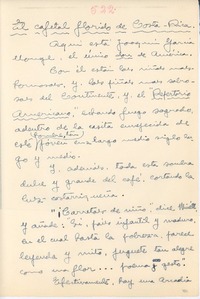 522
El cafetal florido de Costa Rica
Aquí está Joaquín García
Monge, el único de América.
Con él están las niñas más
hermosas, y las piñas más sabro-
sas del Continente, y el "Repertorio
Americano," echando fuego sagrado,
adentro de la cesta
este hombre joven en largo medio siglo
go y medro.
Y, además, toda esta sombra
dulce y grande del café, cortando la
luz costarriqueña.
"¡Carretera de niño" dice,
y añade: Sí, país infantil y maduro,
en el cual hasta la pobreza, parece
leyenda y mito, juguete tan alegre
como una flor... poema y gesto".
Efectivamente, hay una Arcadia